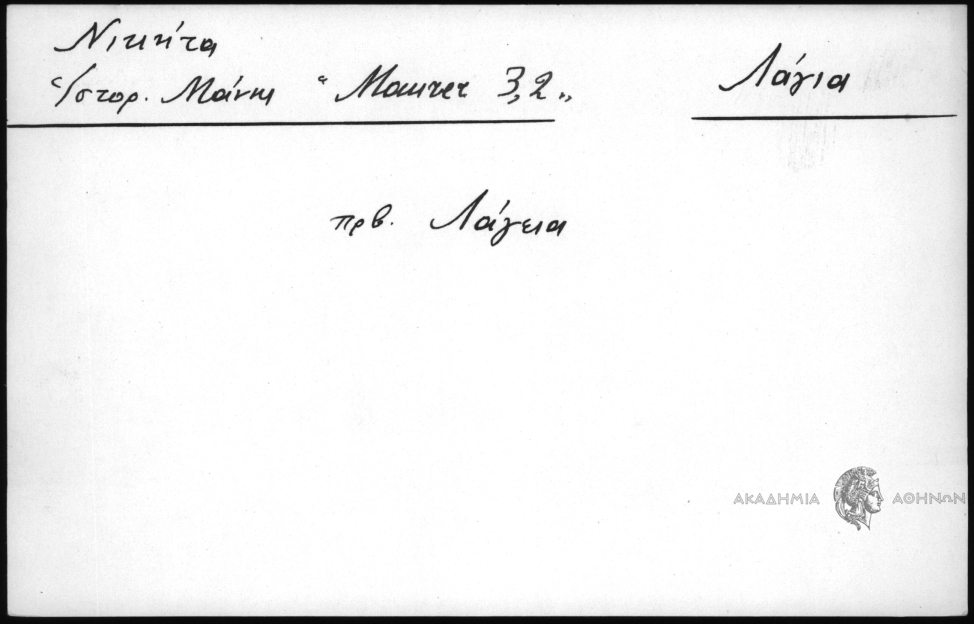 Νικήτα
Ἱστορ. Μάνης " 3,2 „
Λάγια
πρβ. Λάγεια
ΑΚΑΔΗΜΙΑ ΑΘΗΝΩΝ